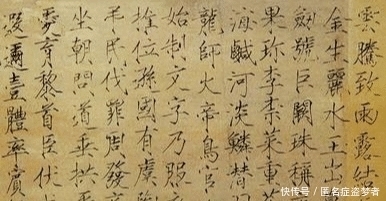 雲騰致雨露結
金生麗水玉出
劒號巨闕珠稱
果珍李柰菜重芥
海鹹河淡鱗潛羽
龍師火帝鳥官
始制文字乃服
推位遜國有虞
弔民伐罪周發
坐朝問道垂拱平
愛育黎首臣伏
遐邇壹體率賓
快传号 / 匿名症盗梦者